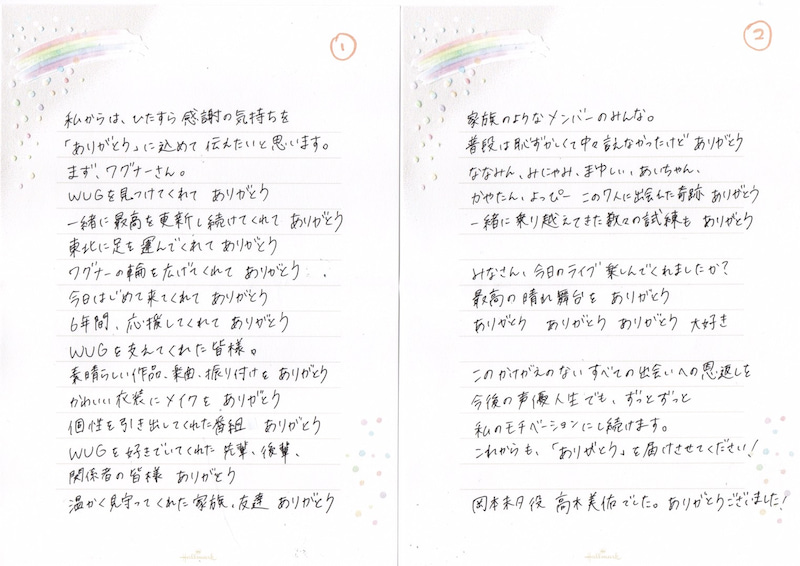 1
私からは、ひたすら感謝の気持ちを
「ありがとう」に込めて伝えたいと思います。
まず、ワグナーさん。
WUGを見つけてくれて ありがとう
一緒に最高を更新し続けてくれて ありがとう
東北に足を運んでくれて ありがとう
ワグナーの輪を広げてくれて ありがとう
今日はじめて来てくれて ありがとう
6年間、応援してくれて ありがとう
WUGを支えてくれた皆様。
素晴らしい作品、楽曲、振り付けを ありがとう
かわいい衣装にメイクを ありがとう
個性を引き出してくれた番組 ありがとう
WUGを好きでいてくれた 先輩、後輩、
関係者の皆様 ありがとう
温かく見守ってくれた家族、友達 ありがとう
Hallmark
2
家族のようなメンバーのみんな。
普段は恥ずかしくて中々言えなかったけど ありがとう
ななみん、みにゃみ、まゆしぃ、あいちゃん、
かやたん、よっぴー この7人に出会えた奇跡 ありがとう
一緒に乗り越えてきた数々の試練も ありがとう
みなさん、今日のライブ楽しんでくれましたか?
最高の晴れ舞台を ありがとう
ありがとう ありがとう ありがとう 大好き
このかけがえのないすべての出会いへの恩返しを
今後の声優人生でも、ずっとずっと
私のモチベーションにし続けます。
これからも、「ありがとう」を届けさせてください!
岡本未夕役 高木美佑でした。ありがとうございました!
Hallmark